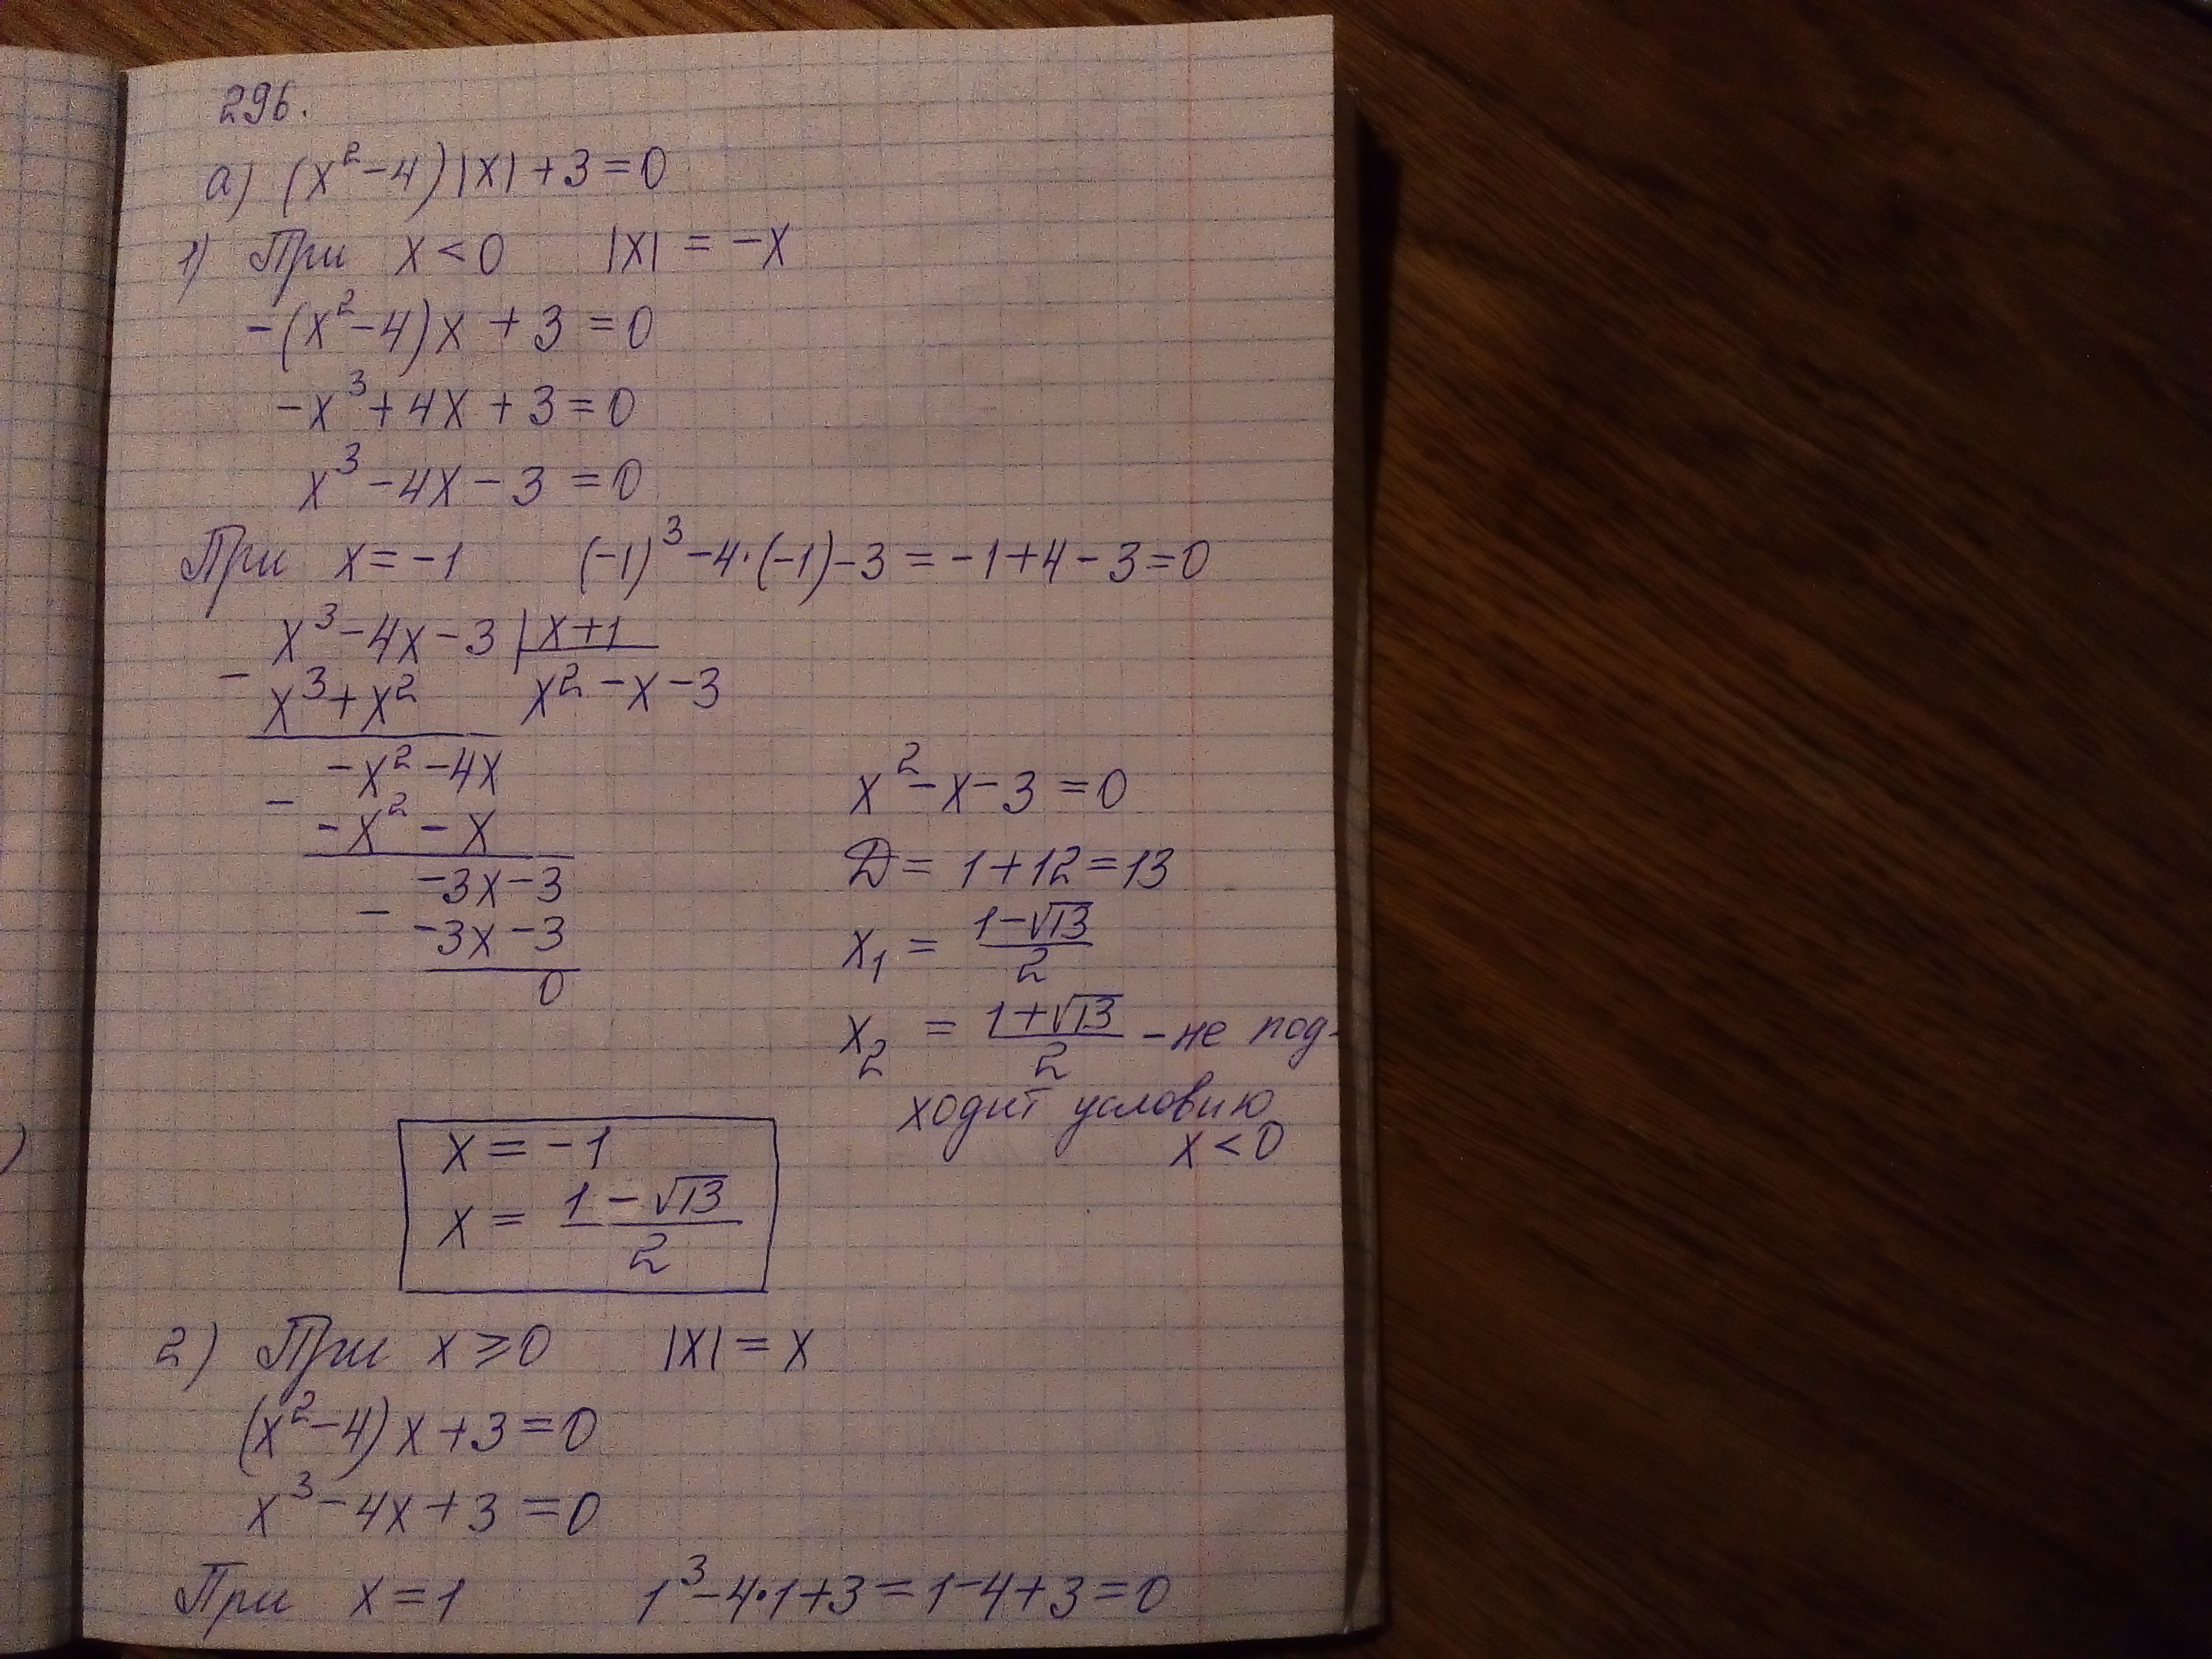 296.
а) (x²-4)|x|+3=0
1) При x<0 |x| = -x
-(x²-4)x + 3 = 0
-x³+4x+3=0
x³-4x-3=0
При x=-1 (-1)³-4·(-1)-3 = -1+4-3=0
x³-4x-3 | x+1
- x³+x² x²-x-3
-x²-4x
- -x²-x
-3x-3
- -3x-3
0
x²-x-3=0
D = 1+12=13
x₁ = (1-√13)/2
x₂ = (1+√13)/2 - не под-
ходит условию
x<0
x = -1
x = (1-√13)/2
2) При x⩾0 |x| = x
(x²-4)x+3=0
x³-4x+3=0
При x=1 1³-4·1+3=1-4+3=0
)